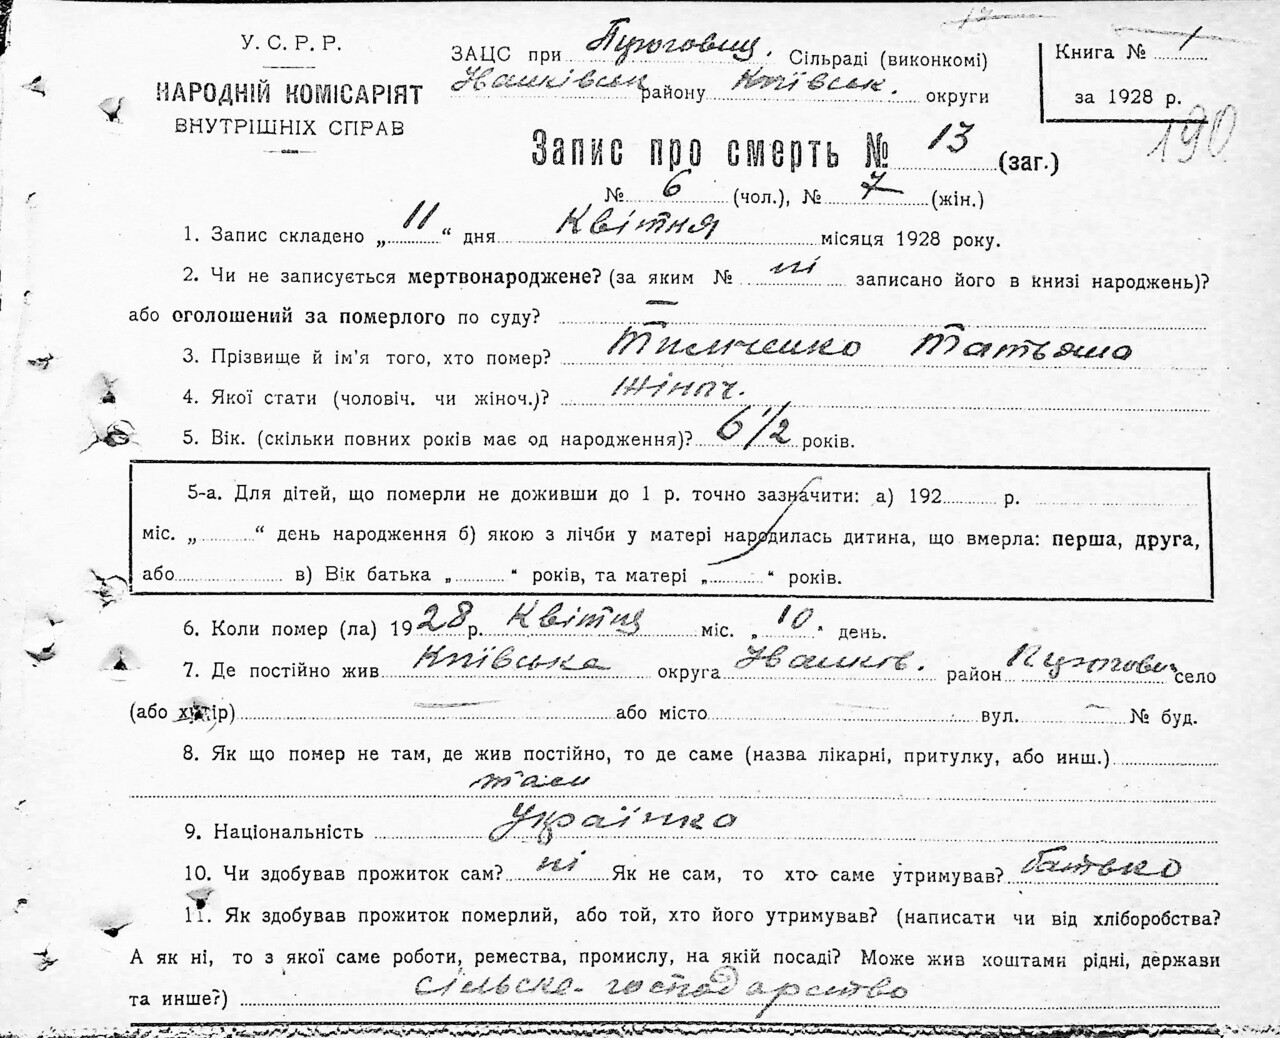 У. С. Р. Р.
НАРОДНІЙ КОМІСАРІЯТ
ВНУТРІШНІХ СПРАВ
ЗАЦС при Пирогівщ. Сільраді (виконкомі)
району Київськ. округи
Книга № 1
за 1928 р.
190
Запис про смерть № 13 (заг.)
№ 6 (чол.), № 7 (жін.)
1. Запис складено „ 11 “ дня Квітня місяця 1928 року.
2. Чи не записується мертвонароджене? (за яким № ні записано його в книзі народжень)?
або оголошений за померлого по суду? —
3. Прізвище й ім’я того, хто помер? Тимченко Татьяна
4. Якої стати (чоловіч. чи жіноч.)? жіноч.
5. Вік. (скільки повних років має од народження)? 6 1/2 років.
5-а. Для дітей, що померли не доживши до 1 р. точно зазначити: а) 192 р.
міс. „ “ день народження б) якою з лічби у матері народилась дитина, що вмерла: перша, друга,
або в) Вік батька „ “ років, та матері „ “ років.
6. Коли помер (ла) 1928 р. Квітня міс. „ 10 “ день.
7. Де постійно жив Київська округа район село
(або хутір) — або місто — вул. — № буд.
8. Як що помер не там, де жив постійно, то де саме (назва лікарні, притулку, або инш.)
там
9. Національність Українка
10. Чи здобував прожиток сам? ні Як не сам, то хто саме утримував? батько
11. Як здобував прожиток померлий, або той, хто його утримував? (написати чи від хліборобства?
А як ні, то з якої саме роботи, ремества, промислу, на якій посаді? Може жив коштами рідні, держави
та инше?) сільске-господарство